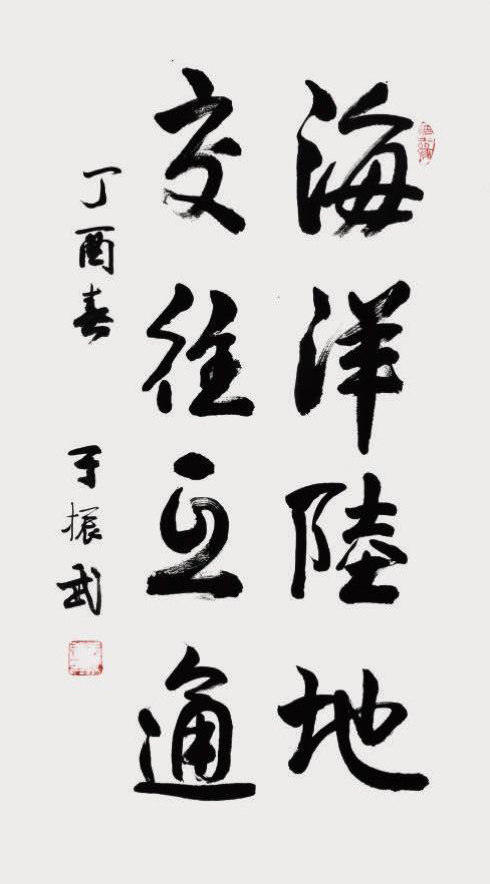 海洋陸地
交往互通
丁酉春 于振武